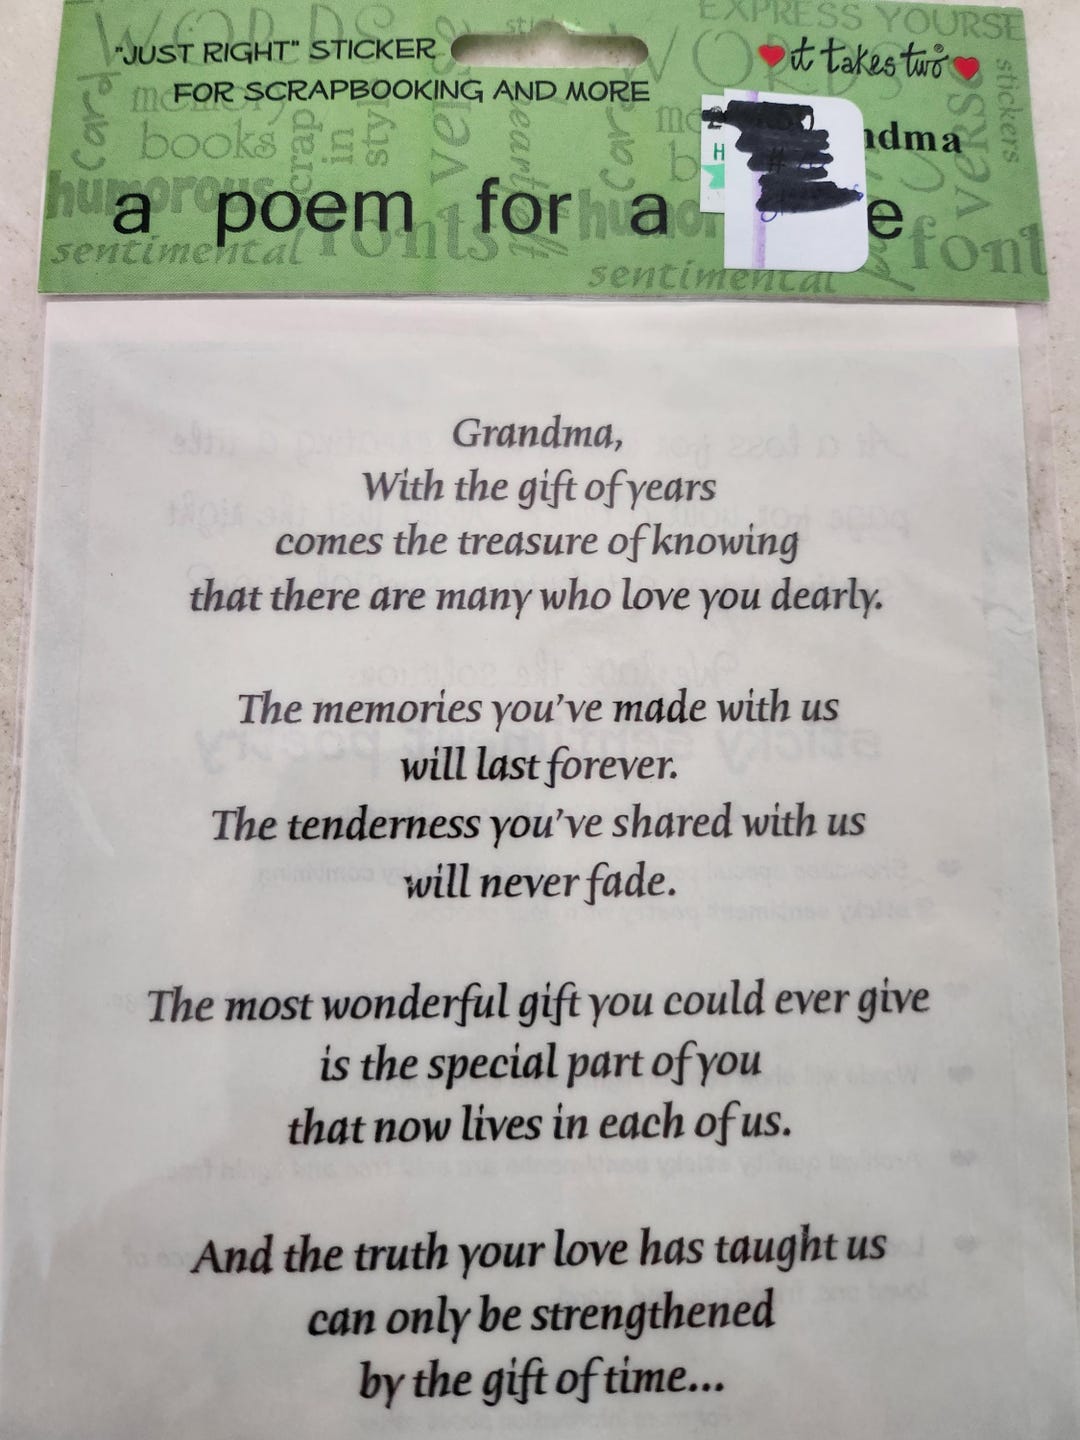 "JUST RIGHT" STICKER
FOR SCRAPBOOKING AND MORE
it takes two®
a poem for a
Grandma,
With the gift of years
comes the treasure of knowing
that there are many who love you dearly.
The memories you've made with us
will last forever.
The tenderness you've shared with us
will never fade.
The most wonderful gift you could ever give
is the special part of you
that now lives in each of us.
And the truth your love has taught us
can only be strengthened
by the gift of time...